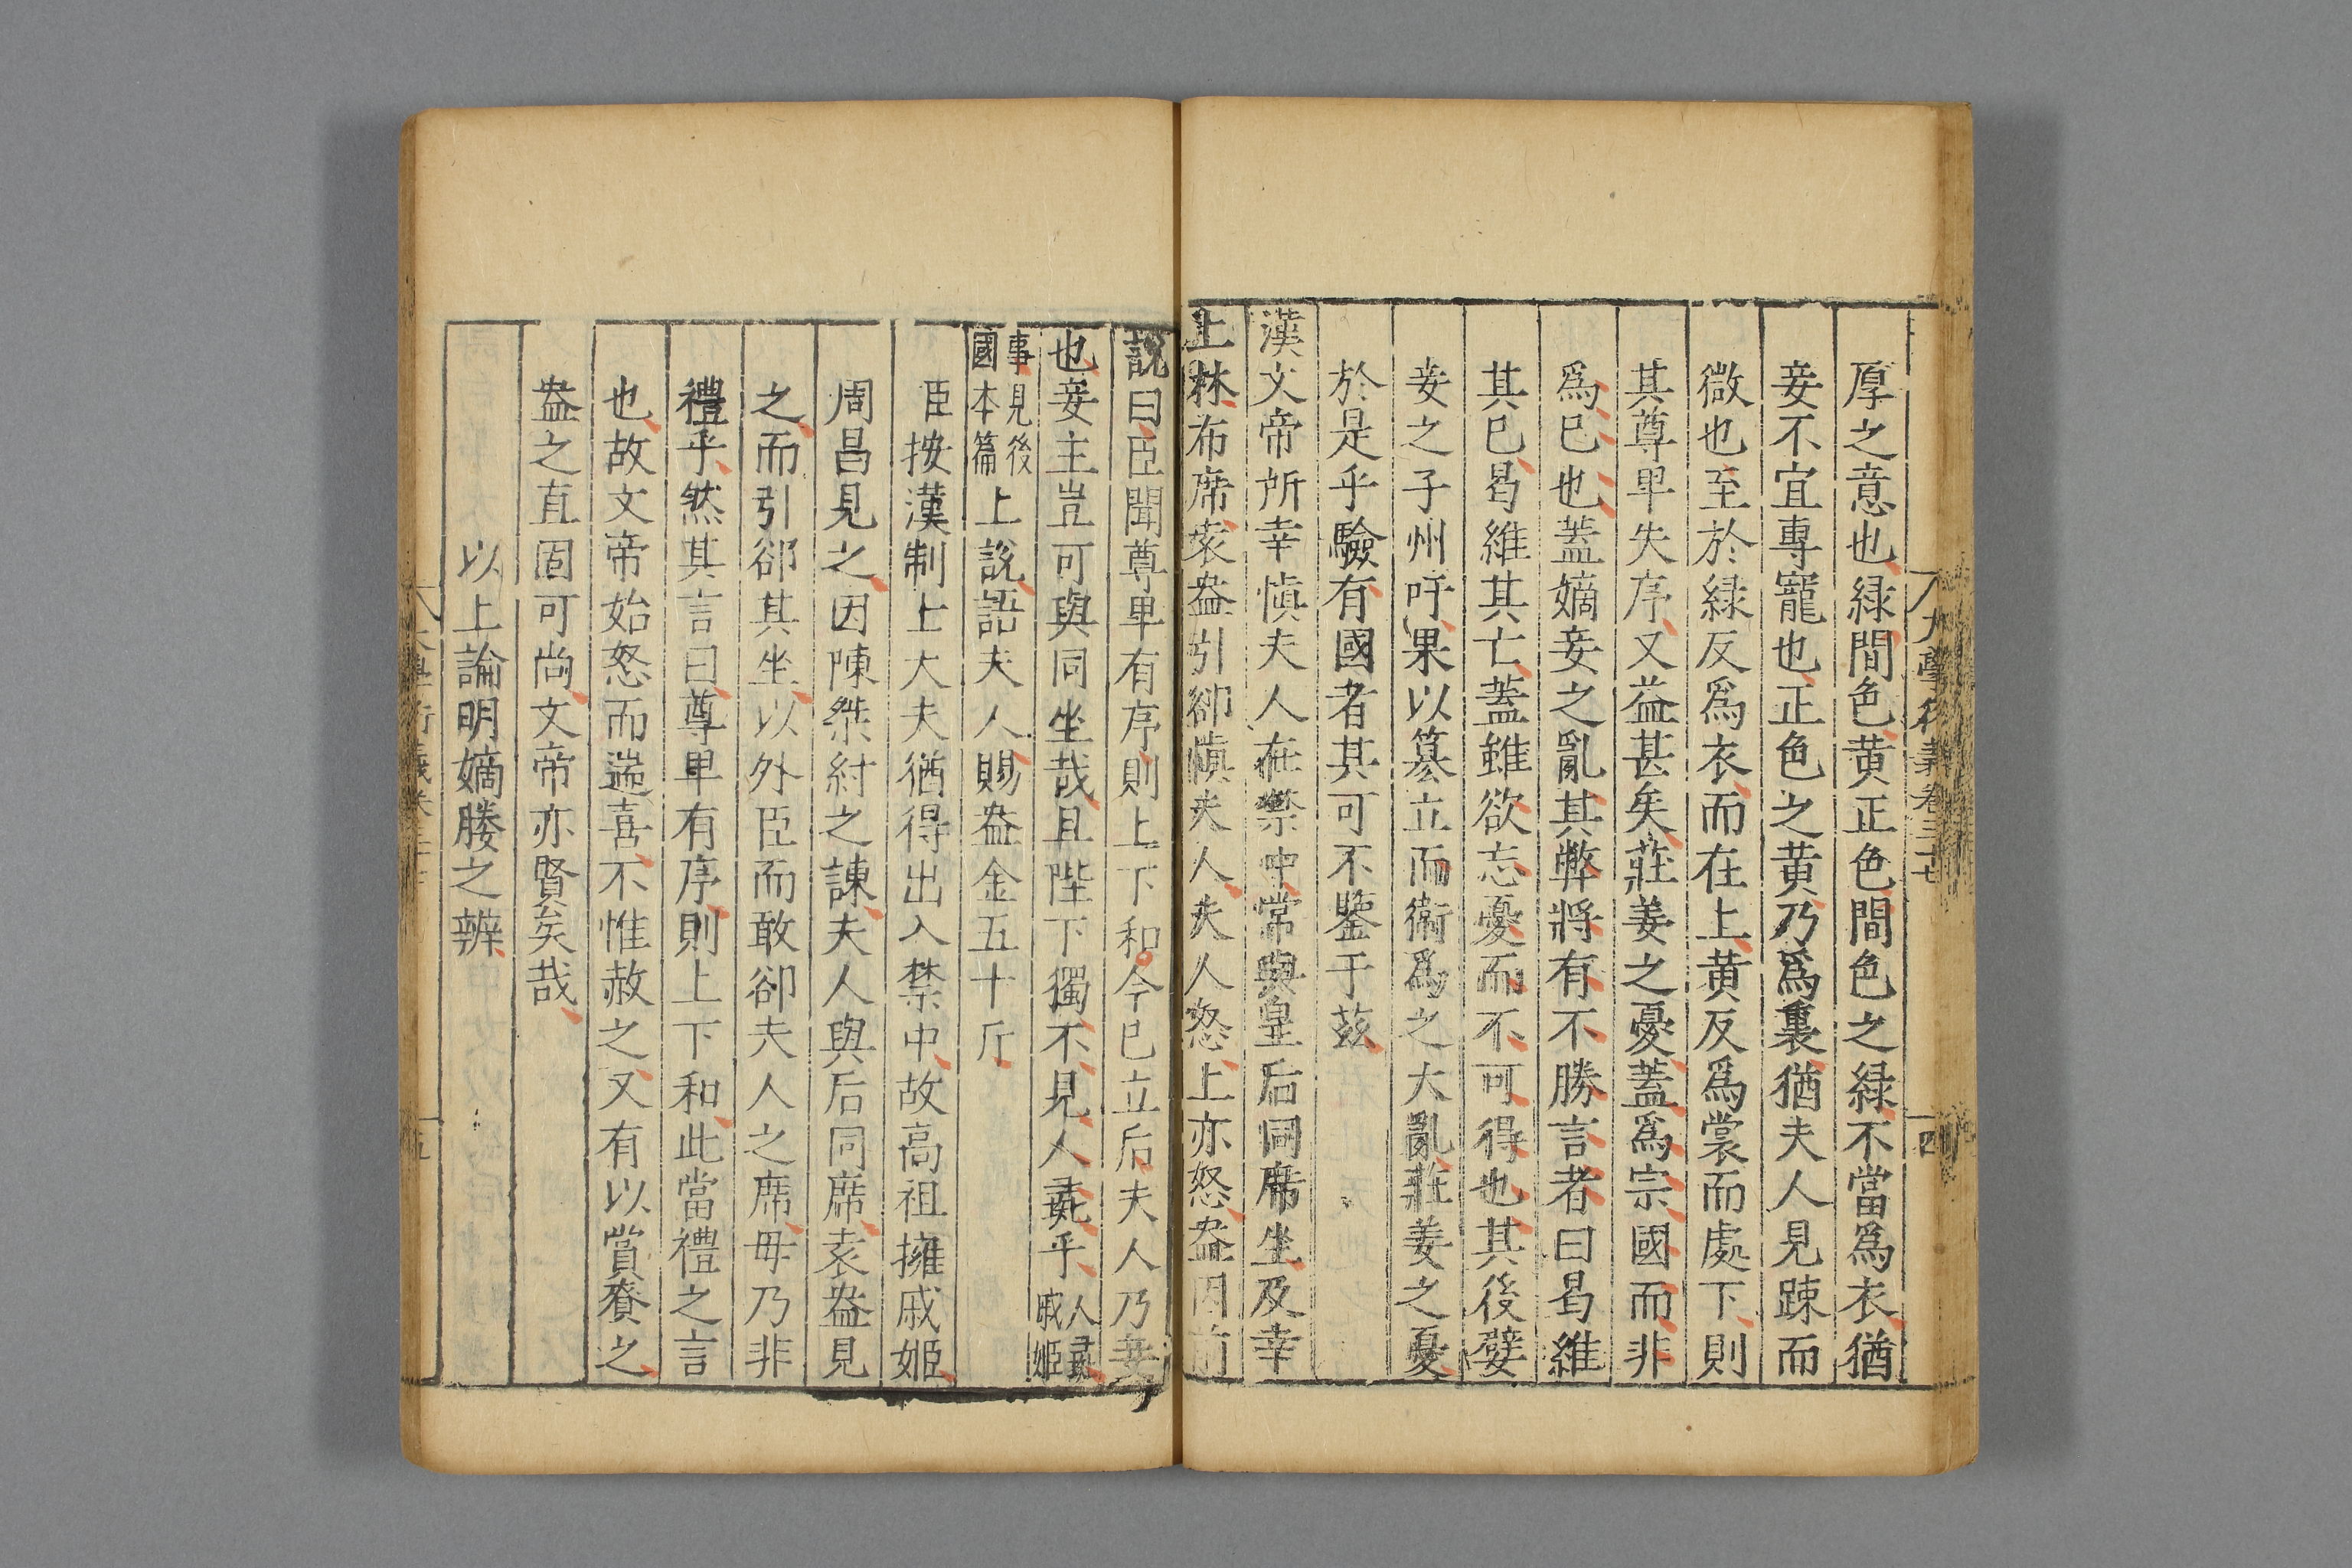 大學衍義卷三十七
四
厚之意也緑間色黄正色間色之緑不當爲衣猶
妾不宜專寵也正色之黄乃爲裏猶夫人見踈而
微也至於緑反爲衣而在上黄反爲裳而處下則
其尊卑失序又益甚矣莊姜之憂蓋爲宗國而非
爲已也蓋嫡妾之亂其弊將有不勝言者曰曷維
其已曷維其亡蓋雖欲忘憂而不可得也其後嬖
妾之子州吁果以簒立而衞爲之大亂莊姜之憂
於是乎驗有國者其可不鑒于兹
漢文帝所幸愼夫人在禁中常與皇后同席坐及幸
上林布席袁盎引卻愼夫人夫人怒上亦怒盎因前
說曰臣聞尊卑有序則上下和今巳立后夫人乃妾
也妾主豈可與同坐哉且陛下獨不見人彘乎人彘戚姬
事見後國本篇上說語夫人賜盎金五十斤
臣按漢制士大夫猶得出入禁中故高祖擁戚姬
周昌見之因陳桀紂之諫夫人與后同席袁盎見
之而引卻其坐以外臣而敢卻夫人之席毋乃非
禮乎然其言曰尊卑有序則上下和此當禮之言
也故文帝始怒而遄喜不惟赦之又有以賞賚之
盎之直固可尚文帝亦賢矣哉
以上論明嫡媵之辨
五